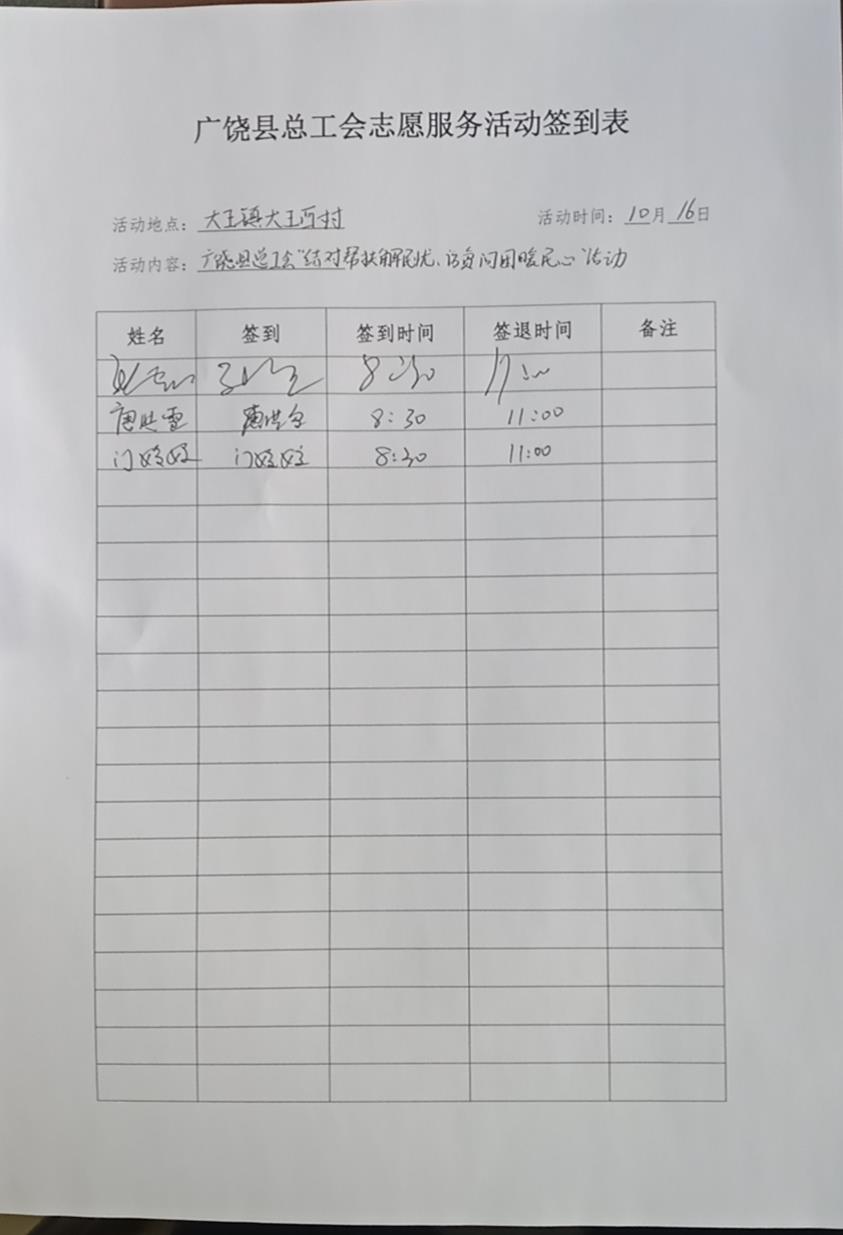 广饶县总工会志愿服务活动签到表
活动地点：大王镇大王西村 活动时间：10月16日
活动内容：广饶县总工会“结对帮扶解民忧、访贫问困暖民心”活动
姓名 签到 签到时间 签退时间 备注
8:30
唐 8:30 11:00
门 门 8:30 11:00